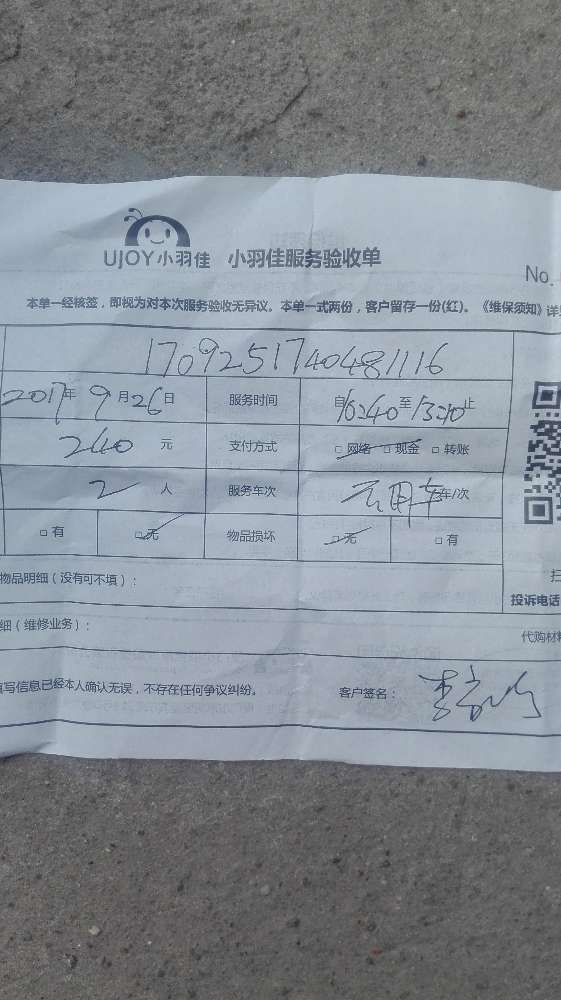 UJOY小羽佳 小羽佳服务验收单
No.
本单一经核签，即视为对本次服务验收无异议。本单一式两份，客户留存一份(红)。《维保须知》详
1709251740481116
2017年9月26日 服务时间 自 至 止
240元 支付方式 □网络 □现金 □转账
2人 服务车次 车/次
□有 □无 物品损坏 □无 □有
物品明细（没有可不填）：
投诉电话
细（维修业务）： 代购材料
填写信息已经本人确认无误，不存在任何争议纠纷。 客户签名：